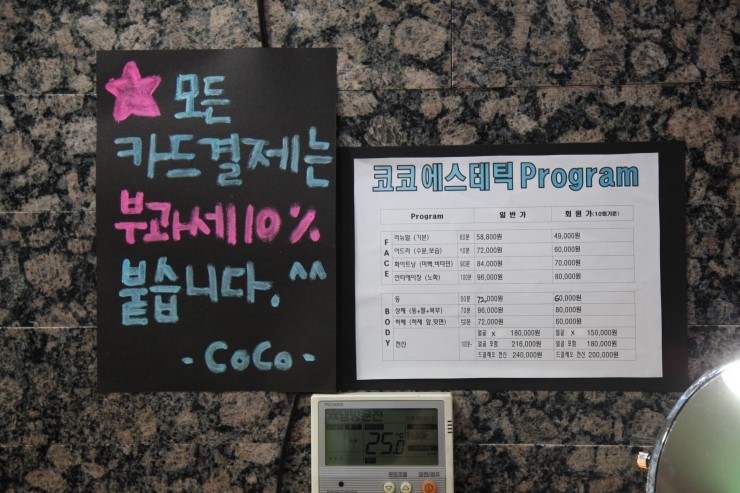 모든
카드결제는
부과세10%
붙습니다.^^
-CoCo-
코코에스테틱 Program
Program 일반가 회원가(10회기준)
FACE
리뉴얼 (기본) 60분 58,800원 49,000원
아드라 (수분,보습) 72,000원 60,000원
화이트닝 (미백,비타민) 90분 84,000원 70,000원
안티에이징 (노화) 100분 96,000원 80,000원
BODY
등 50분 72,000원 60,000원
상체 (등+팔+복부) 70분 96,000원 80,000원
하체 (하체 앞,뒷면) 72,000원 60,000원
전신 얼굴 x 180,000원 얼굴 x 150,000원
얼굴 포함 216,000원 얼굴 포함 180,000원
드클레오 전신 240,000원 드클레오 전신 200,000원
25.0℃